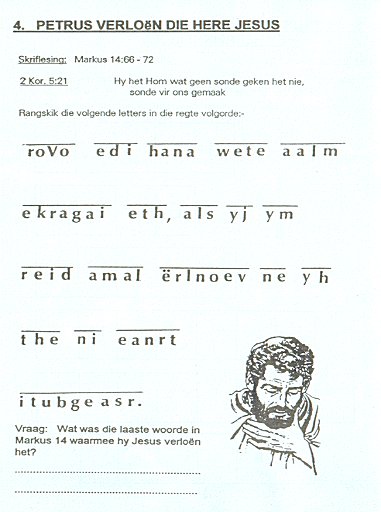 4. PETRUS VERLOëN DIE HERE JESUS
Skriflesing: Markus 14:66 - 72
2 Kor. 5:21 Hy het Hom wat geen sonde geken het nie,
sonde vir ons gemaak
Rangskik die volgende letters in die regte volgorde:-
roVo edi hana wete aalm
ekragai eth, als yj ym
reid amal ërlnoev ne yh
the ni eanrt
itubgeasr.
Vraag: Wat was die laaste woorde in
Markus 14 waarmee hy Jesus verloën
het?